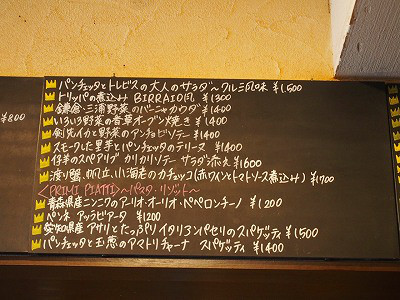 パンチェッタとトレビスの大人のサラダ〜クルミ風味 ¥1,500
トリッパの煮込み BIRRAIO風 ¥1300
鎌倉・三浦野菜のバーニャカウダ ¥1400
いろいろ野菜の香草オーブン焼き ¥1400
剣先イカと野菜のアンチョビソテー ¥1400
スモークした里芋とパンチェッタのテリーヌ ¥1400
仔羊のスペアリブ カリカリソテー サラダ添え ¥1600
渡り蟹、帆立、小海老のカチュッコ(赤ワインとトマトソース煮込み) ¥1700
¥800
<PRIMI PIATTI>〜パスタ・リゾット〜
青森県産ニンニクのアーリオ・オーリオ・ペペロンチーノ ¥1200
ペンネ アラビアータ ¥1200
愛知県産 アサリとたっぷりイタリアンパセリのスパゲッティ ¥1500
パンチェッタと玉葱のアマトリチャーナ スパゲッティ ¥1400